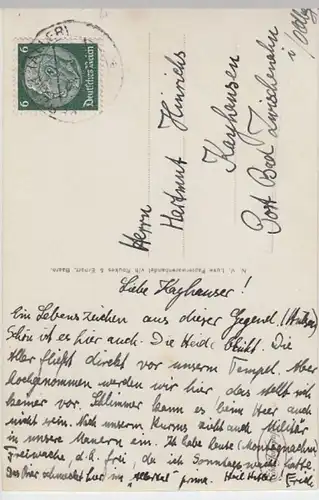 6 Deutsches Reich 6
Herrn
Hartmut Hinrichs
Kayhausen
Post Bad Zwischenahn
i/Oldbg
N. v. Luxe Papierwarenhandel v/h Roukes & Erhart, Baarn.
Liebe Kayhauser!
Ein Lebenszeichen aus dieser Gegend.
Schön ist es hier auch. Die Heide blüht. Die
Aller fließt direkt vor unserm Tempel. Aber
hochgenommen werden wir hier, das stellt sich
keiner vor. Schlimmer kann es beim Heer auch
nicht sein. Nach unserm Kursus zieht auch Militär
in unsere Mauern ein. Ich habe heute (Montagnachm.)
Freiwache, d.h. frei, da ich Sonntagswache hatte.
Das Bier schmeckt hier im prima.